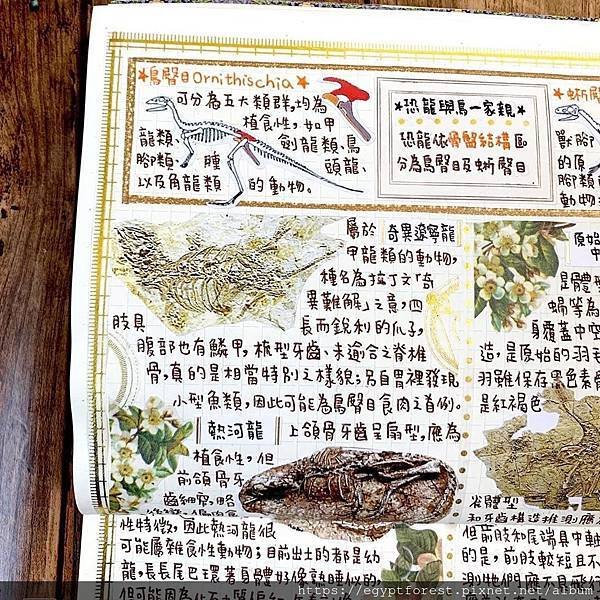 ★鳥臀目Ornithischia★
可分為五大類群,均為
植食性,如甲
龍類、劍龍類、鳥
腳類、腫頭龍、
以及角龍類的動物。
★恐龍與鳥一家親★
恐龍依骨臀結構區
分為鳥臀目及蜥臀目
★蜥臀
獸腳
的原
腳類
動物
屬於 奇異遼寧龍
甲龍類的動物,
種名為拉丁文「奇
異難解」之意,四
肢具長而銳利的爪子,
腹部也有鱗甲,梳型牙齒、未逾合之脊椎
骨,真的是相當特別之樣貌;另自胃裡發現
小型魚類,因此可能為鳥臀目食肉之首例。
熱河龍 上頜骨牙齒呈扇型,應為
植食性,但
前頜骨牙
齒細窄,略
性特徵,因此熱河龍很
可能屬雜食性動物;目前出土的都是幼
龍,長長尾巴環著身體好像熟睡似的,
原始
中
是體型
蝸等為
身覆蓋中空
造,是原始的羽毛
羽雖保存黑色素
是紅褐色
省體型
和牙齒構造推測應
但前肢和尾端具中
的是,前肢較短且不
測牠們應不具飛行
https://egyptforest.pixnet.net/album